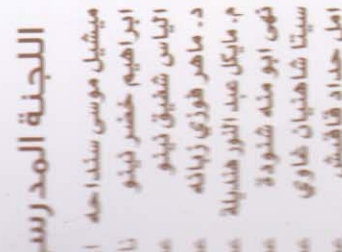 اللجنة المدرسـ
ميشيل موسى سنداحه
ابراهيم خضر نينو
الياس شفيق نينو
د. ماهر فوزي زبانه
م. مايكل عبد النور هنديلة
نهى ابو منه شنودة
سيتا شاهنيان خاوي
امل حداد قافيش